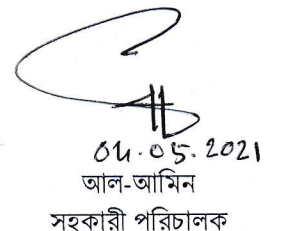 04.05.2021
আল-আমিন
সহকারী পরিচালক